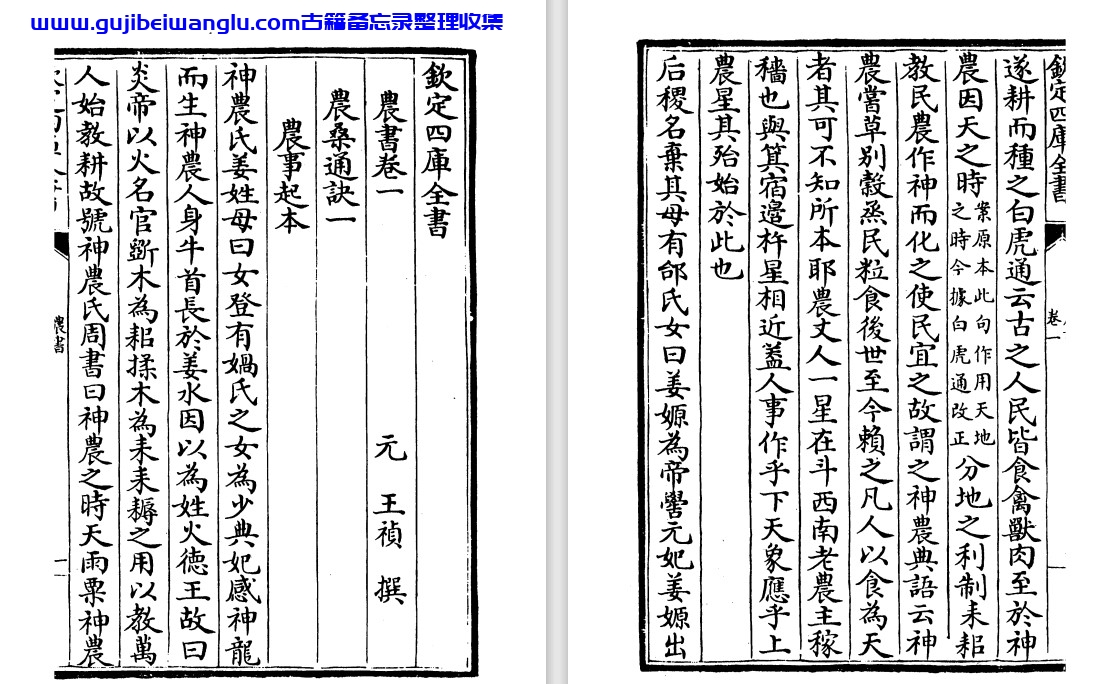 www.gujibeiwanglu.com古籍备忘录整理收集
欽定四庫全書
農書卷一
元 王禎 撰
農桑通訣一
農事起本
神農氏姜姓母曰女登有媧氏之女為少典妃感神龍
而生神農人身牛首長於姜水因以為姓火德王故曰
炎帝以火名官斵木為耜揉木為耒耒耨之用以教萬
人始教耕故號神農氏周書曰神農之時天雨粟神農
農書
一
欽定四庫全書
卷一
遂耕而種之白虎通云古之人民皆食禽獸肉至於神
農因天之時案原本此句作用天地之時今據白虎通改正分地之利制耒耜
教民農作神而化之使民宜之故謂之神農典語云神
農嘗草别榖烝民粒食後世至今賴之凡人以食為天
者其可不知所本耶農丈人一星在斗西南老農主稼
穡也與箕宿邉杵星相近葢人事作乎下天象應乎上
農星其殆始於此也
后稷名棄其母有邰氏女曰姜嫄為帝嚳元妃姜嫄出